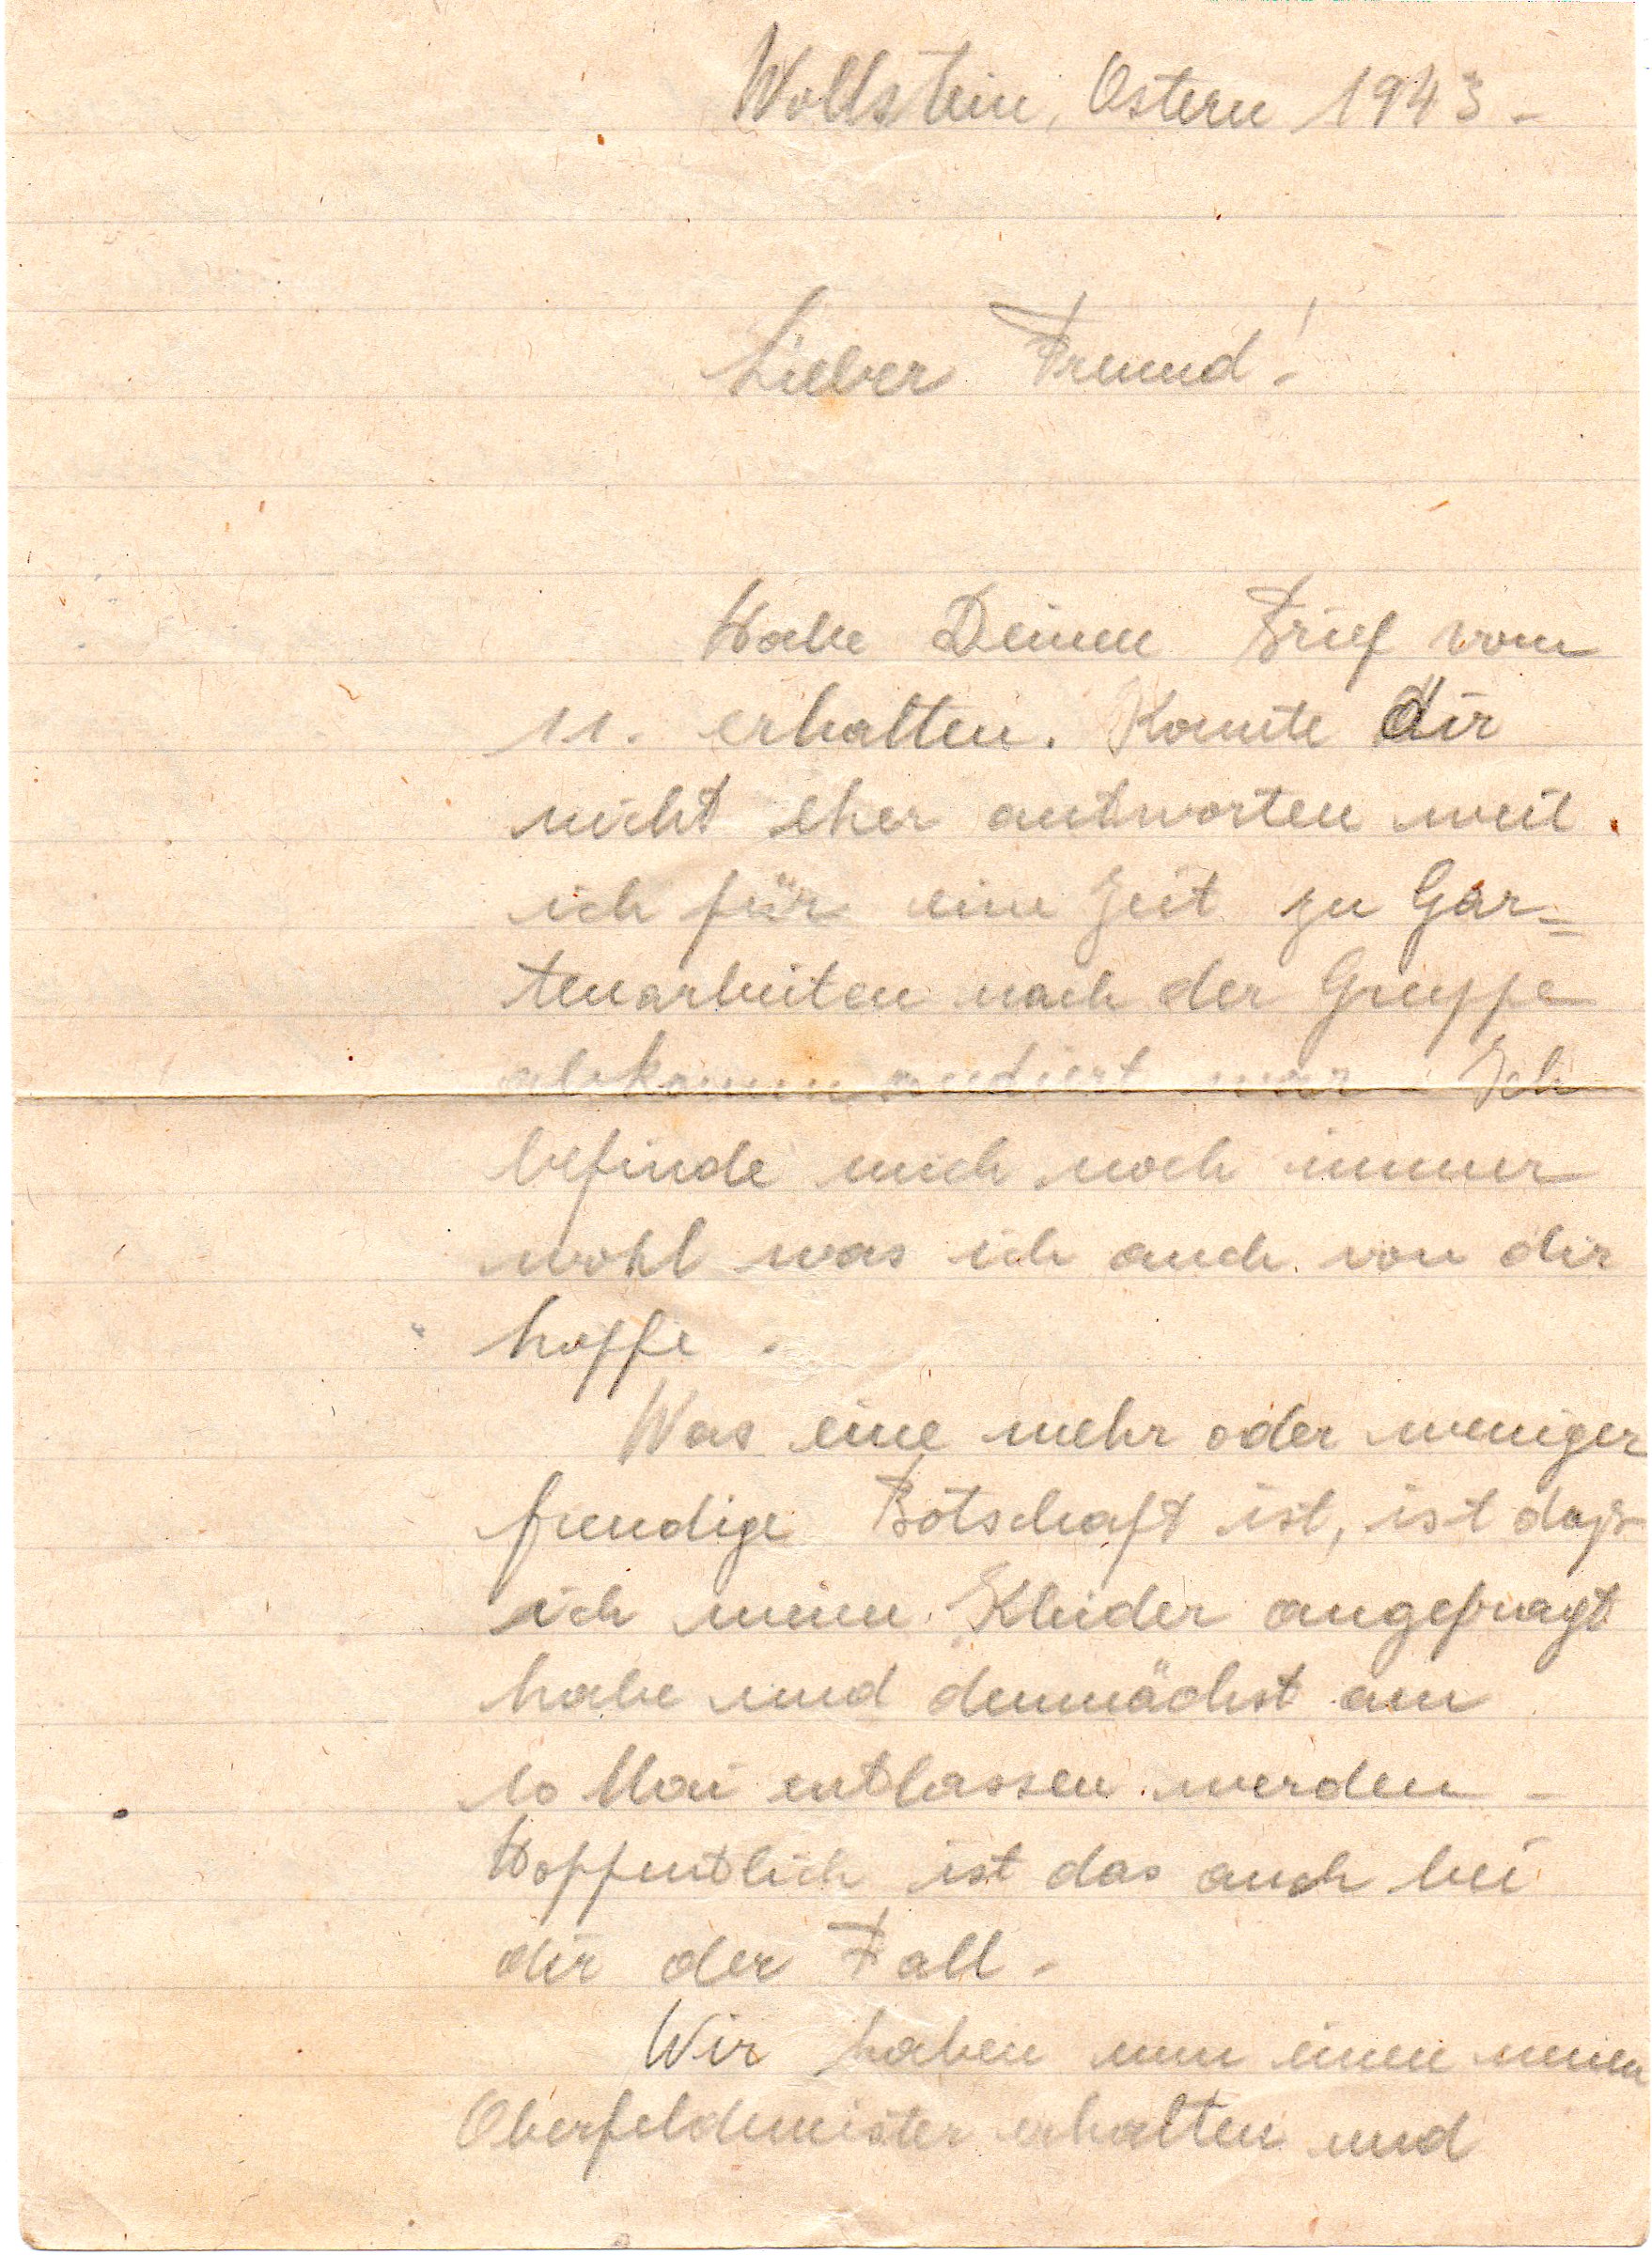 Wollstein, Ostern 1943.
Lieber Freund!
Habe Deinen Brief vom
11. erhalten. Konnte dir
nicht eher antworten weil
ich für eine Zeit zu Gar=
tenarbeiten nach der Gruppe
abkommandiert war. Ich
befinde mich noch immer
wohl was ich auch von dir
hoffe.
Was eine mehr oder weniger
freudige Botschaft ist, ist daß
ich meine Kleider angefragt
habe und demnächst am
10 Mai entlassen werden.
Hoffentlich ist das auch bei
dir der Fall.
Wir haben nun einen neuen
Oberfeldmeister erhalten und